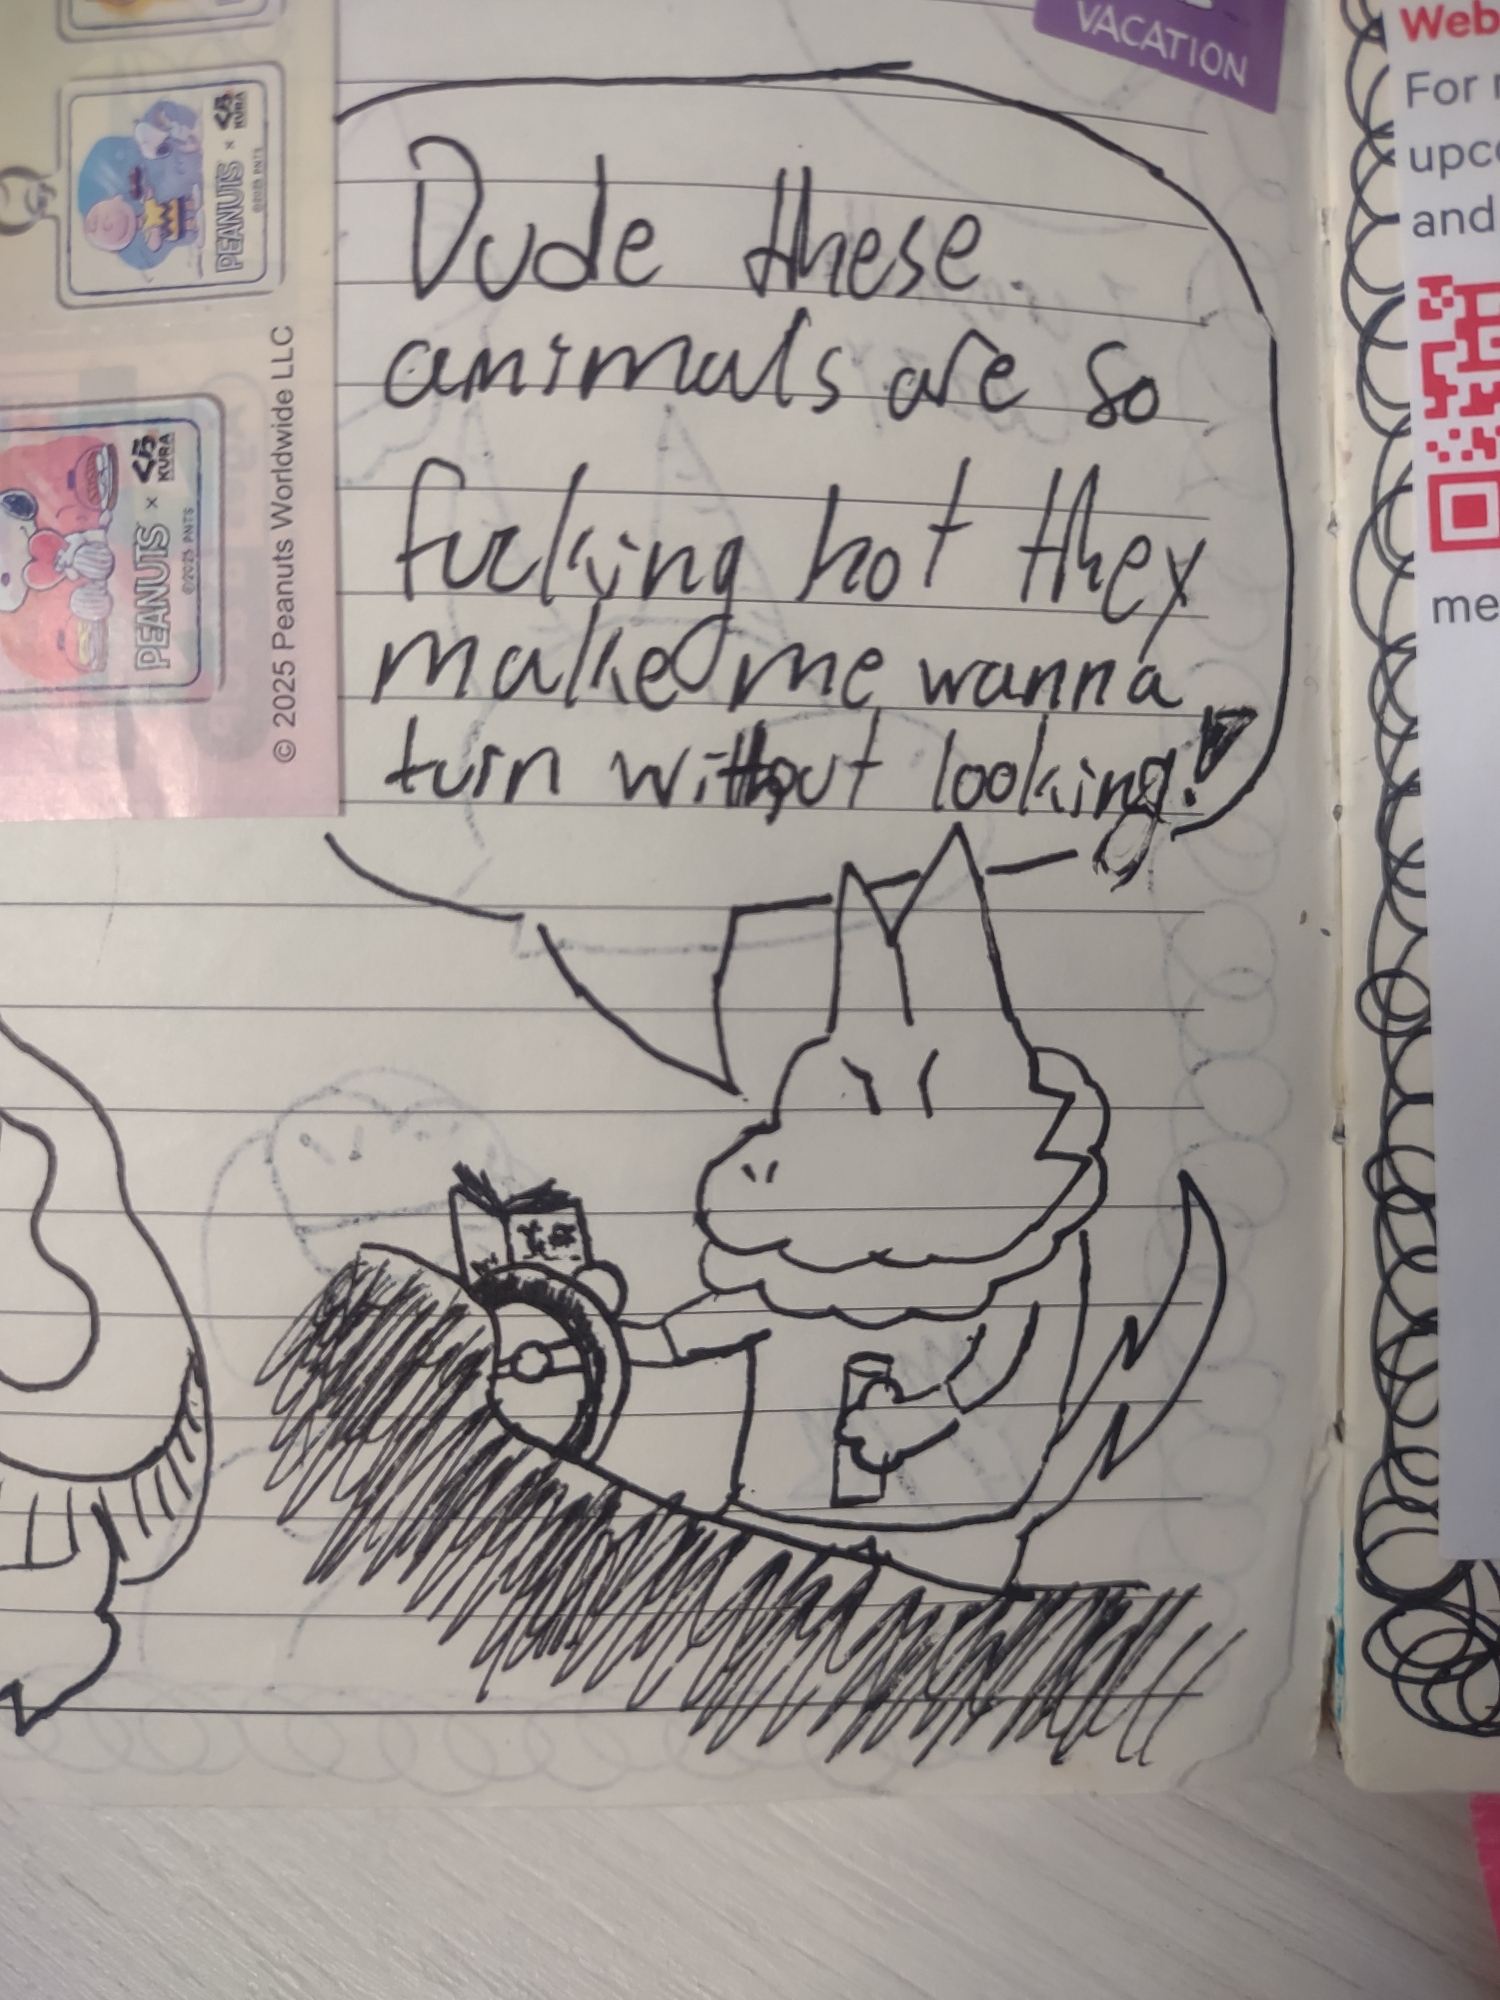 VACATION
PEANUTS × くら KURA
©2025 PNTS
PEANUTS × くら KURA
©2025 PNTS
© 2025 Peanuts Worldwide LLC
Dude these
animals are so
fucking hot they
make me wanna
turn without looking!
Web
For
upco
and
me